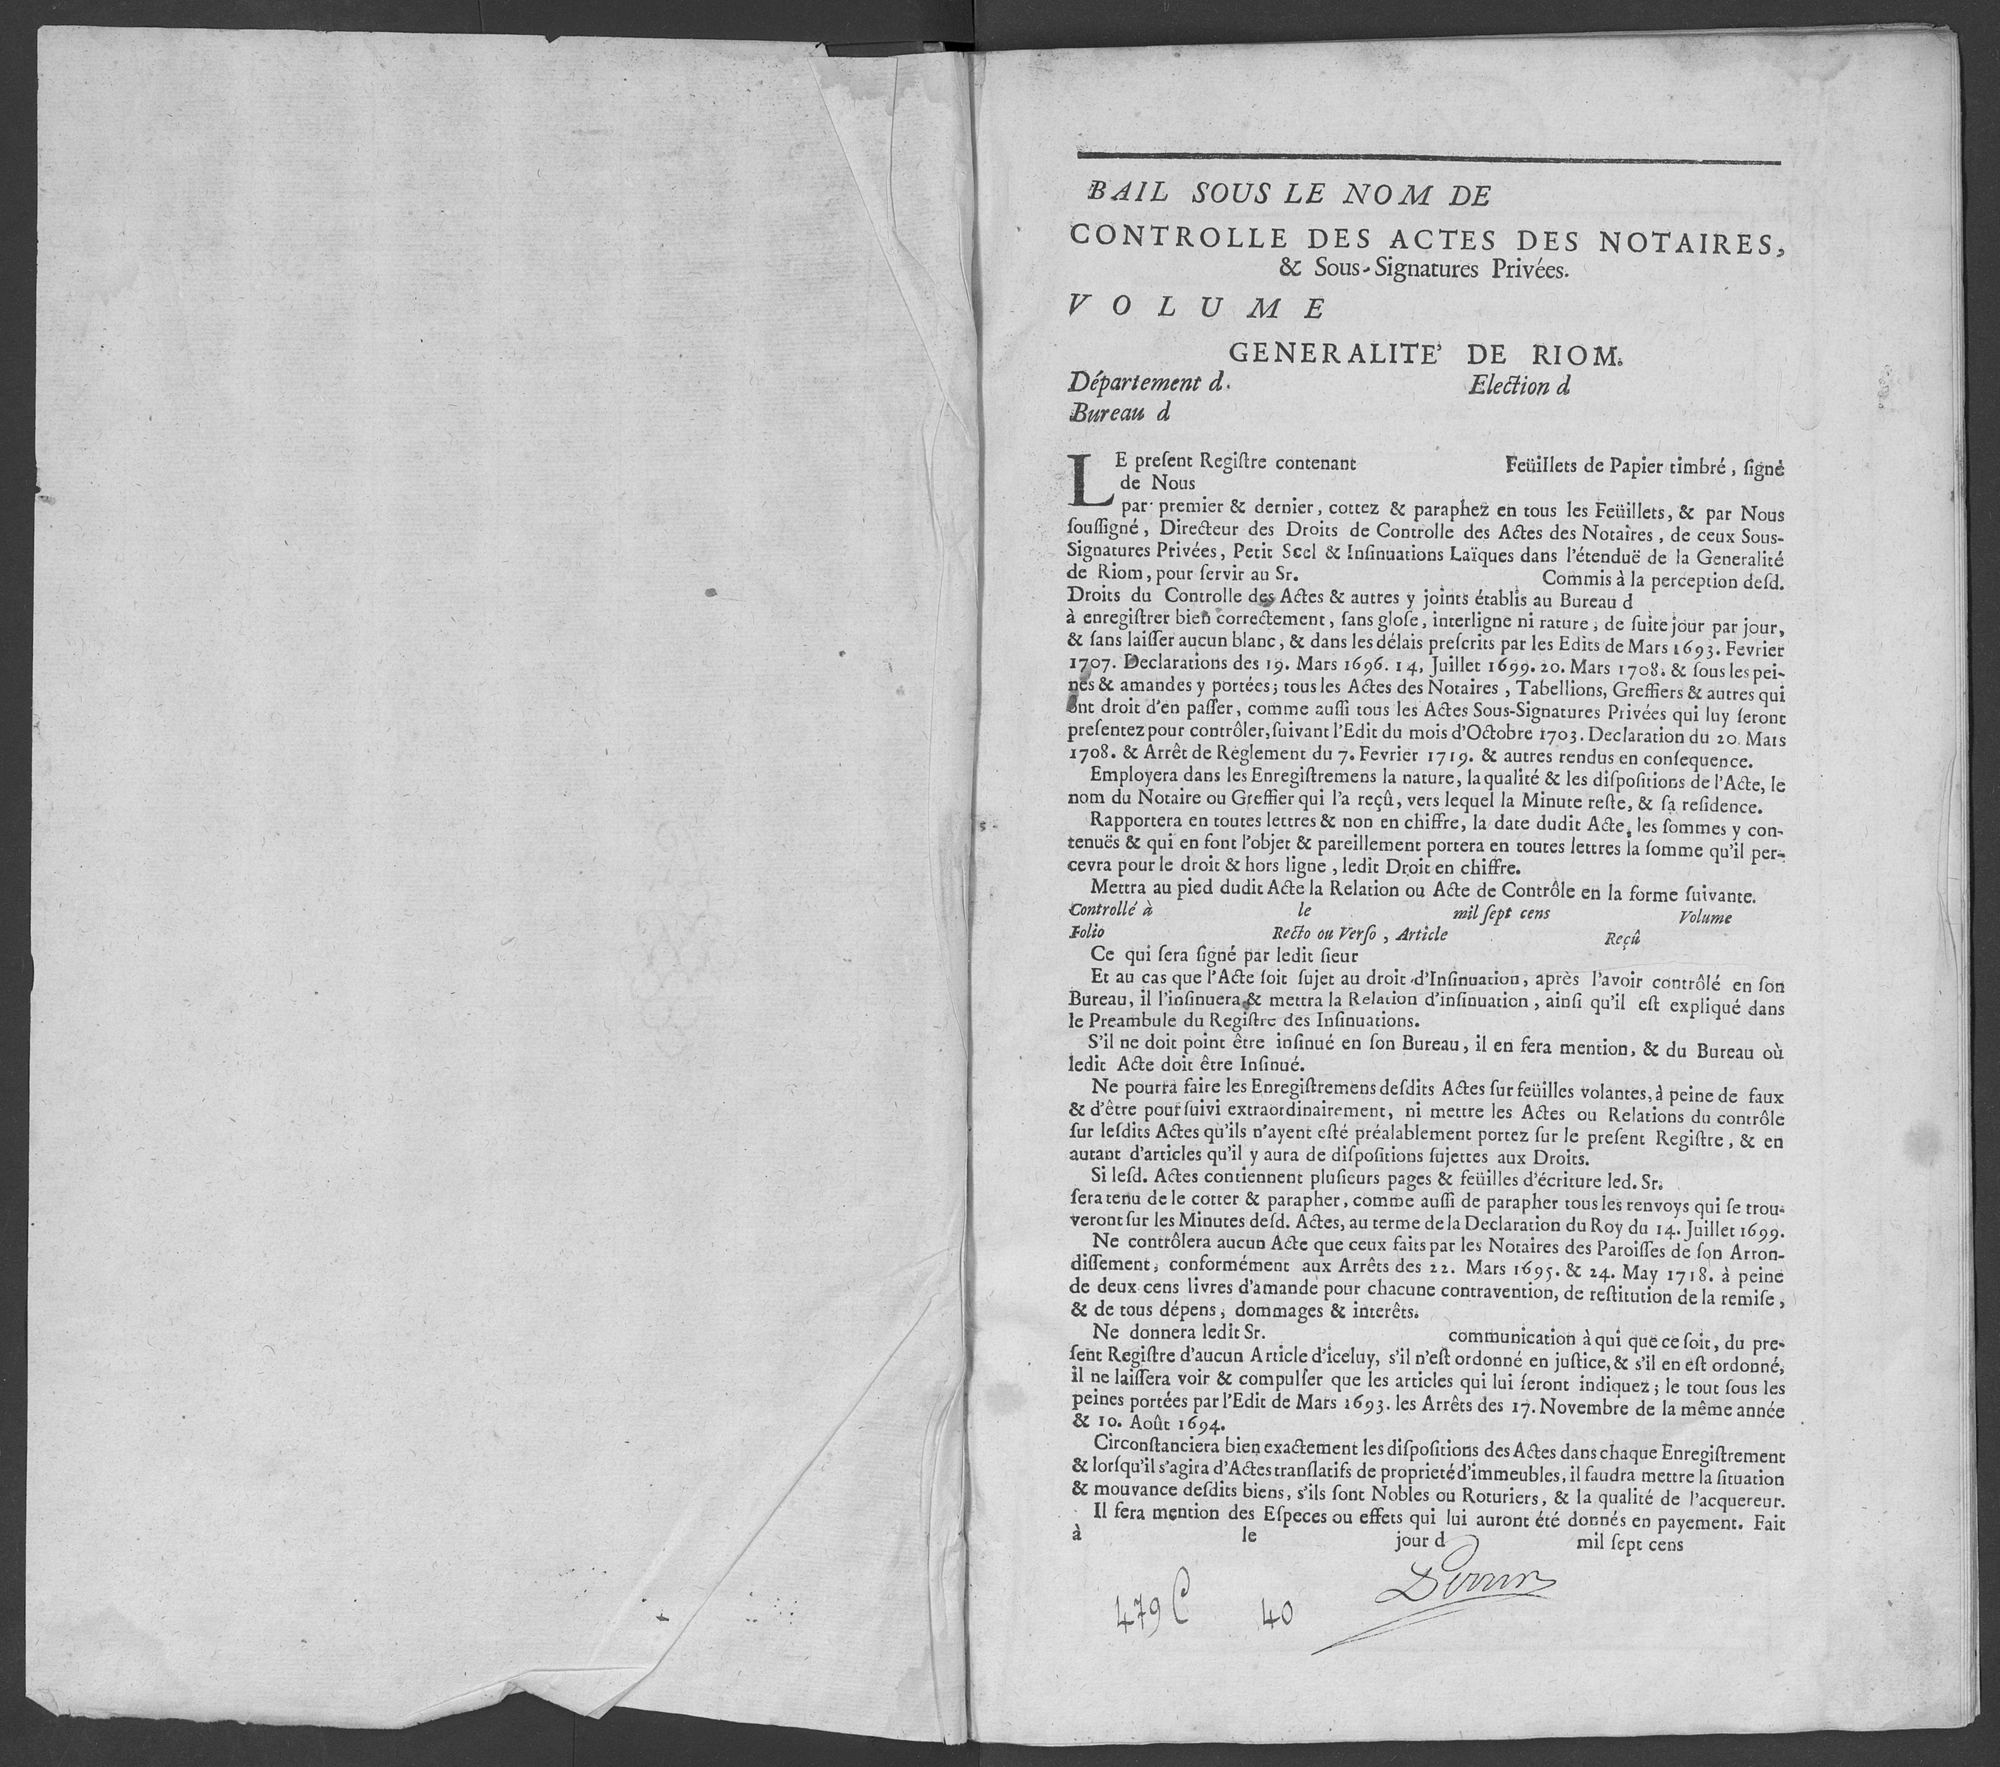 BAIL SOUS LE NOM DE
CONTROLLE DES ACTES DES NOTAIRES,
& Sous-Signatures Privées.
VOLUME
GENERALITE' DE RIOM.
Département d. Election d
Bureau d
LE preſent Regiſtre contenant Feüillets de Papier timbré, ſigné
de Nous
par premier & dernier, cottez & paraphez en tous les Feüillets, & par Nous
ſouſſigné, Directeur des Droits de Controlle des Actes des Notaires, de ceux Sous-
Signatures Privées, Petit Scel & Inſinuations Laïques dans l'étenduë de la Generalité
de Riom, pour ſervir au Sr. Commis à la perception deſd.
Droits du Controlle des Actes & autres y joints établis au Bureau d
à enregiſtrer bien correctement, ſans gloſe, interligne ni rature, de ſuite jour par jour,
& ſans laiſſer aucun blanc, & dans les délais preſcrits par les Edits de Mars 1693. Fevrier
1707. Declarations des 19. Mars 1696. 14. Juillet 1699. 20. Mars 1708. & ſous les pei-
nes & amandes y portées; tous les Actes des Notaires, Tabellions, Greffiers & autres qui
ont droit d'en paſſer, comme auſſi tous les Actes Sous-Signatures Privées qui luy ſeront
preſentez pour contrôler, ſuivant l'Edit du mois d'Octobre 1703. Declaration du 20. Mars
1708. & Arrêt de Réglement du 7. Fevrier 1719. & autres rendus en conſequence.
Employera dans les Enregiſtremens la nature, la qualité & les diſpoſitions de l'Acte, le
nom du Notaire ou Greffier qui l'a reçû, vers lequel la Minute reſte, & ſa reſidence.
Rapportera en toutes lettres & non en chiffre, la date dudit Acte, les ſommes y con-
tenuës & qui en font l'objet & pareillement portera en toutes lettres la ſomme qu'il per-
cevra pour le droit & hors ligne, ledit Droit en chiffre.
Mettra au pied dudit Acte la Relation ou Acte de Contrôle en la forme ſuivante.
Controllé à le mil ſept cens Volume
Folio Recto ou Verſo, Article Reçû
Ce qui ſera ſigné par ledit ſieur
Et au cas que l'Acte ſoit ſujet au droit d'Inſinuation, après l'avoir contrôlé en ſon
Bureau, il l'inſinuera & mettra la Relation d'inſinuation, ainſi qu'il eſt expliqué dans
le Preambule du Regiſtre des Inſinuations.
S'il ne doit point être inſinué en ſon Bureau, il en fera mention, & du Bureau où
ledit Acte doit être Inſinué.
Ne pourra faire les Enregiſtremens deſdits Actes ſur feüilles volantes, à peine de faux
& d'être pourſuivi extraordinairement, ni mettre les Actes ou Relations du contrôle
ſur leſdits Actes qu'ils n'ayent eſté préalablement portez ſur le preſent Regiſtre, & en
autant d'articles qu'il y aura de diſpoſitions ſujettes aux Droits.
Si leſd. Actes contiennent pluſieurs pages & feüilles d'écriture led. Sr.
ſera tenu de le cotter & parapher, comme auſſi de parapher tous les renvoys qui ſe trou-
veront ſur les Minutes deſd. Actes, au terme de la Declaration du Roy du 14. Juillet 1699.
Ne contrôlera aucun Acte que ceux faits par les Notaires des Paroiſſes de ſon Arron-
diſſement, conformément aux Arrêts des 22. Mars 1695. & 24. May 1718. à peine
de deux cens livres d'amande pour chacune contravention, de reſtitution de la remiſe,
& de tous dépens, dommages & interêts.
Ne donnera ledit Sr. communication à qui que ce ſoit, du pre-
ſent Regiſtre d'aucun Article d'iceluy, s'il n'eſt ordonné en juſtice, & s'il en eſt ordonné,
il ne laiſſera voir & compulſer que les articles qui lui ſeront indiquez; le tout ſous les
peines portées par l'Edit de Mars 1693. les Arrêts des 17. Novembre de la même année
& 10. Août 1694.
Circonſtanciera bien exactement les diſpoſitions des Actes dans chaque Enregiſtrement
& lorſqu'il s'agira d'Actes tranſlatifs de proprieté d'immeubles, il faudra mettre la ſituation
& mouvance deſdits biens, s'ils ſont Nobles ou Roturiers, & la qualité de l'acquereur.
Il fera mention des Eſpeces ou effets qui lui auront été donnés en payement. Fait
à le jour d mil ſept cens
479 C 40